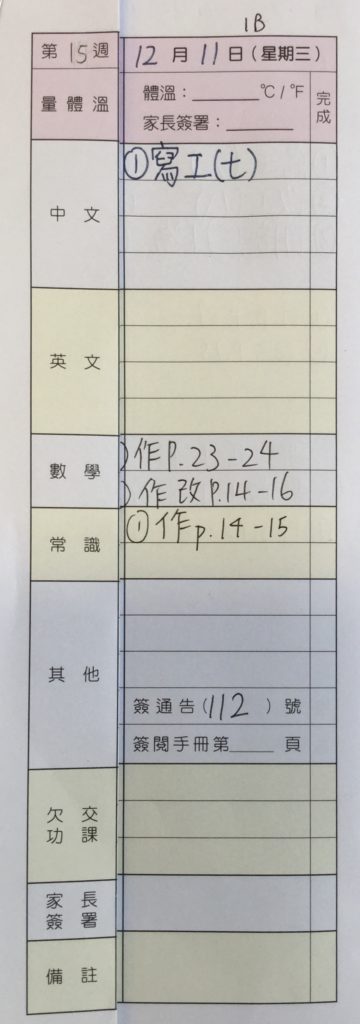 1B
第15週 12月11日(星期三)
量體溫 體溫：______℃/℉ 完成
家長簽署：______
中文 ①寫工(七)
英文
數學 )作P.23-24
)作改P.14-16
常識 ①作p.14-15
其他
簽通告(112)號
簽閱手冊第____頁
欠交
功課
家長
簽署
備註